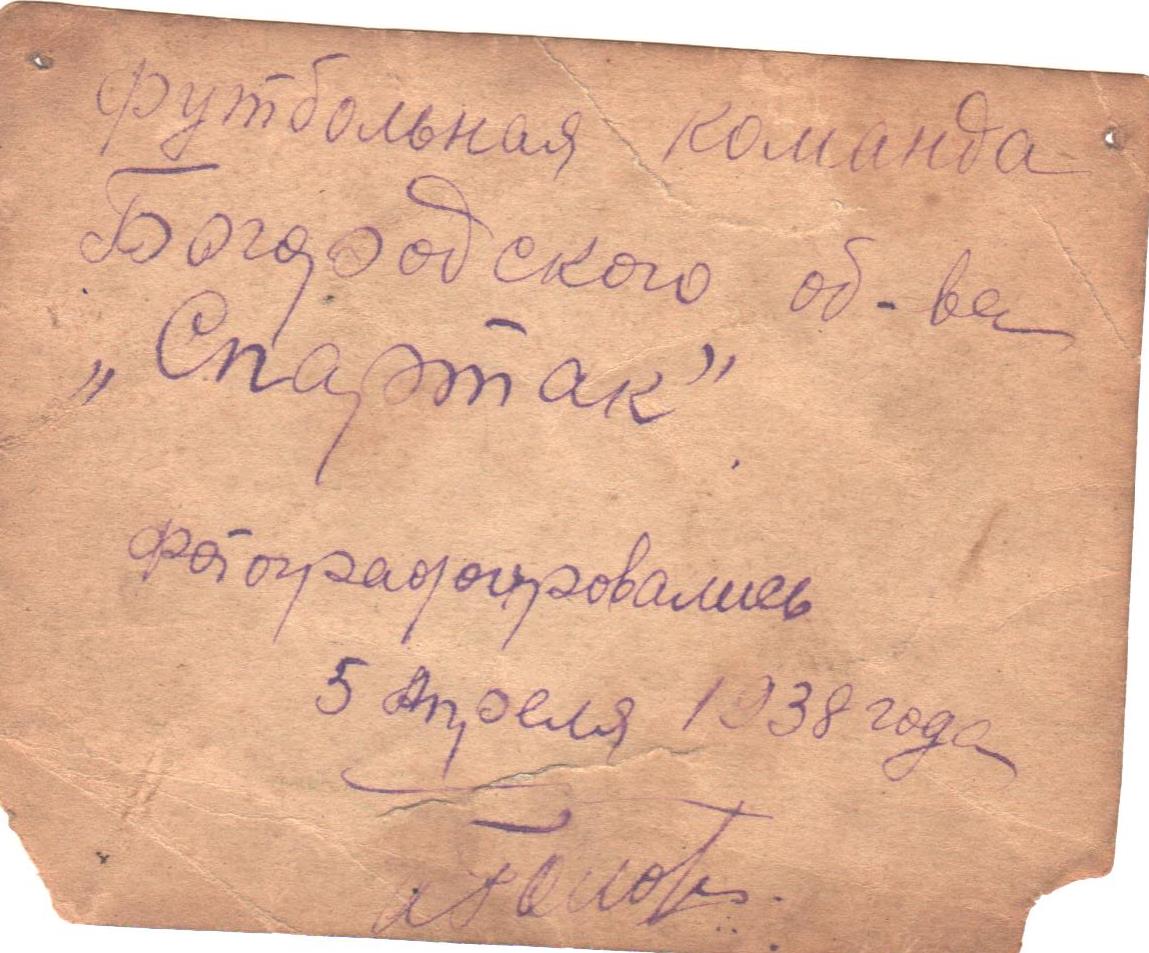 Футбольная команда
Богородского об-ва
„Спартак”
фотографировались
5 Апреля 1938 года